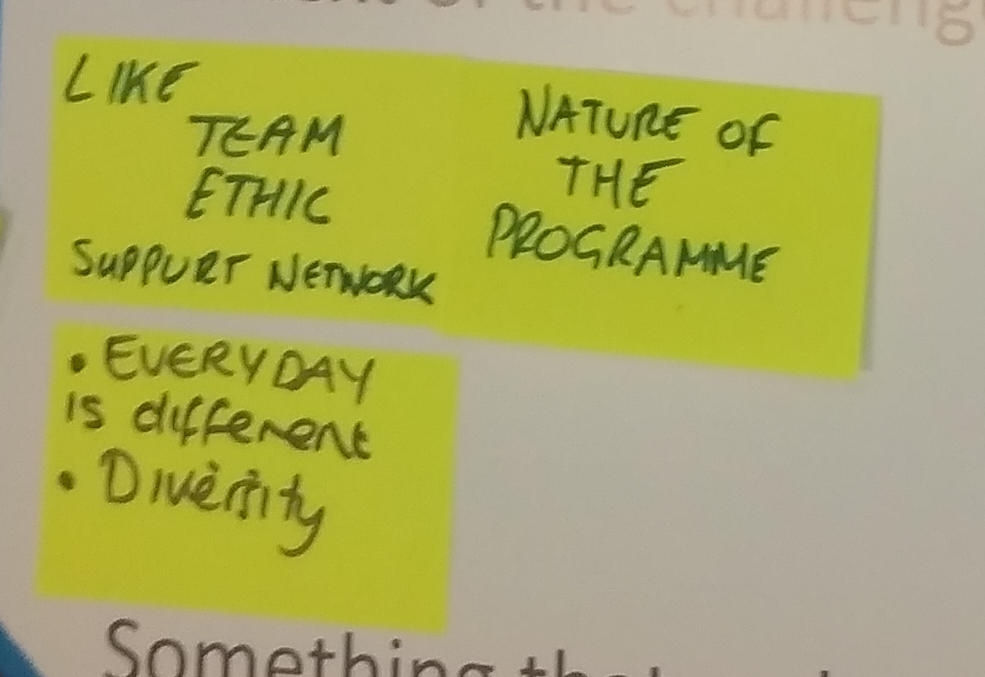 of the challeng
LIKE
TEAM
ETHIC
SUPPORT NETWORK
NATURE OF
THE
PROGRAMME
• EVERYDAY
is different
• Diversity
Something